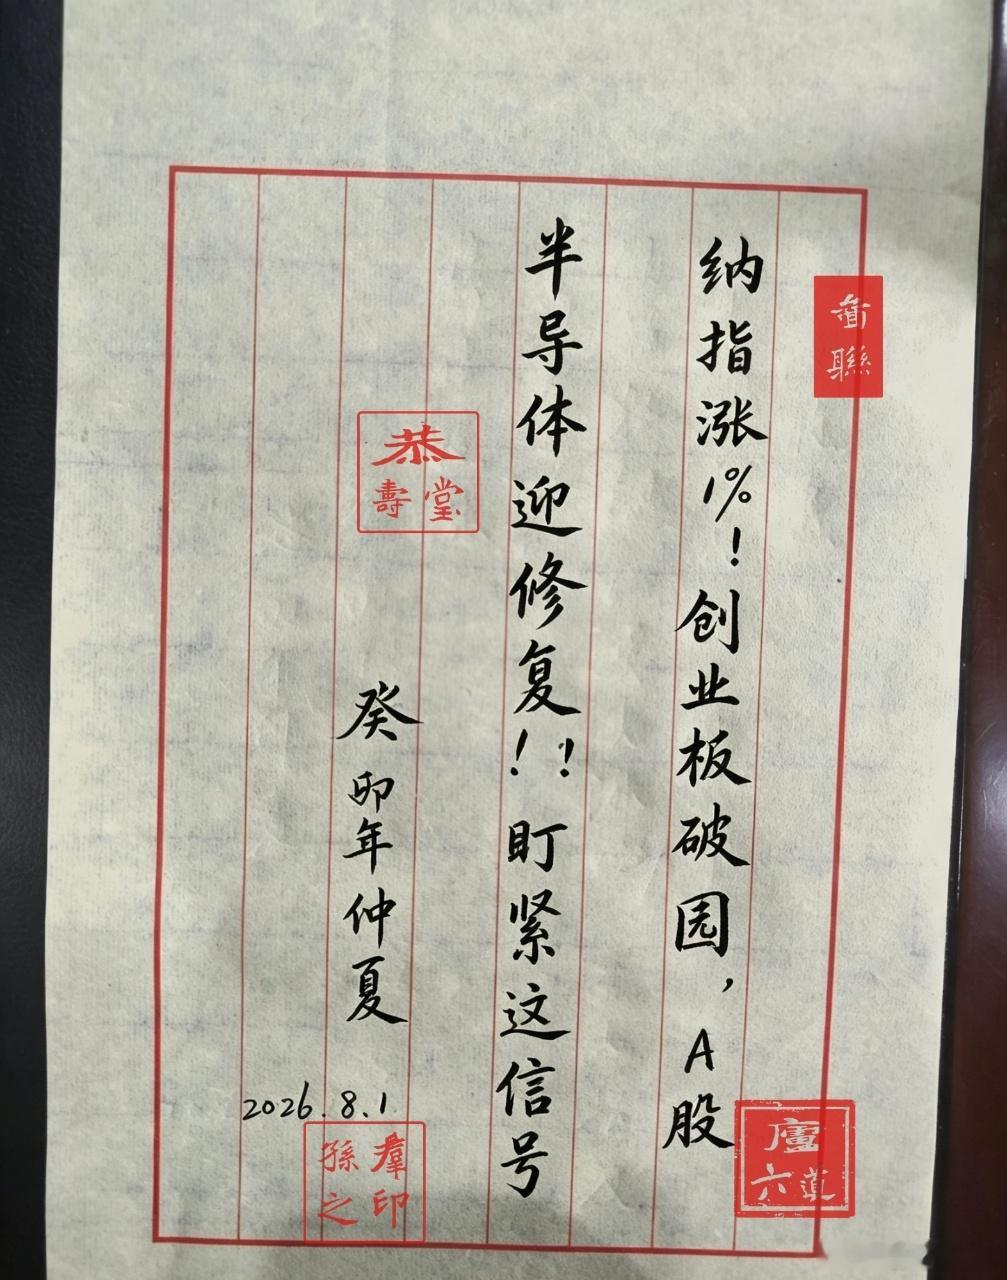 纳指涨1%!创业板破园,A股
半导体迎修复!!盯紧这信号
癸卯年仲夏
2026.8.1
恭
壽堂
孫羣
之印
廬
六道
聯